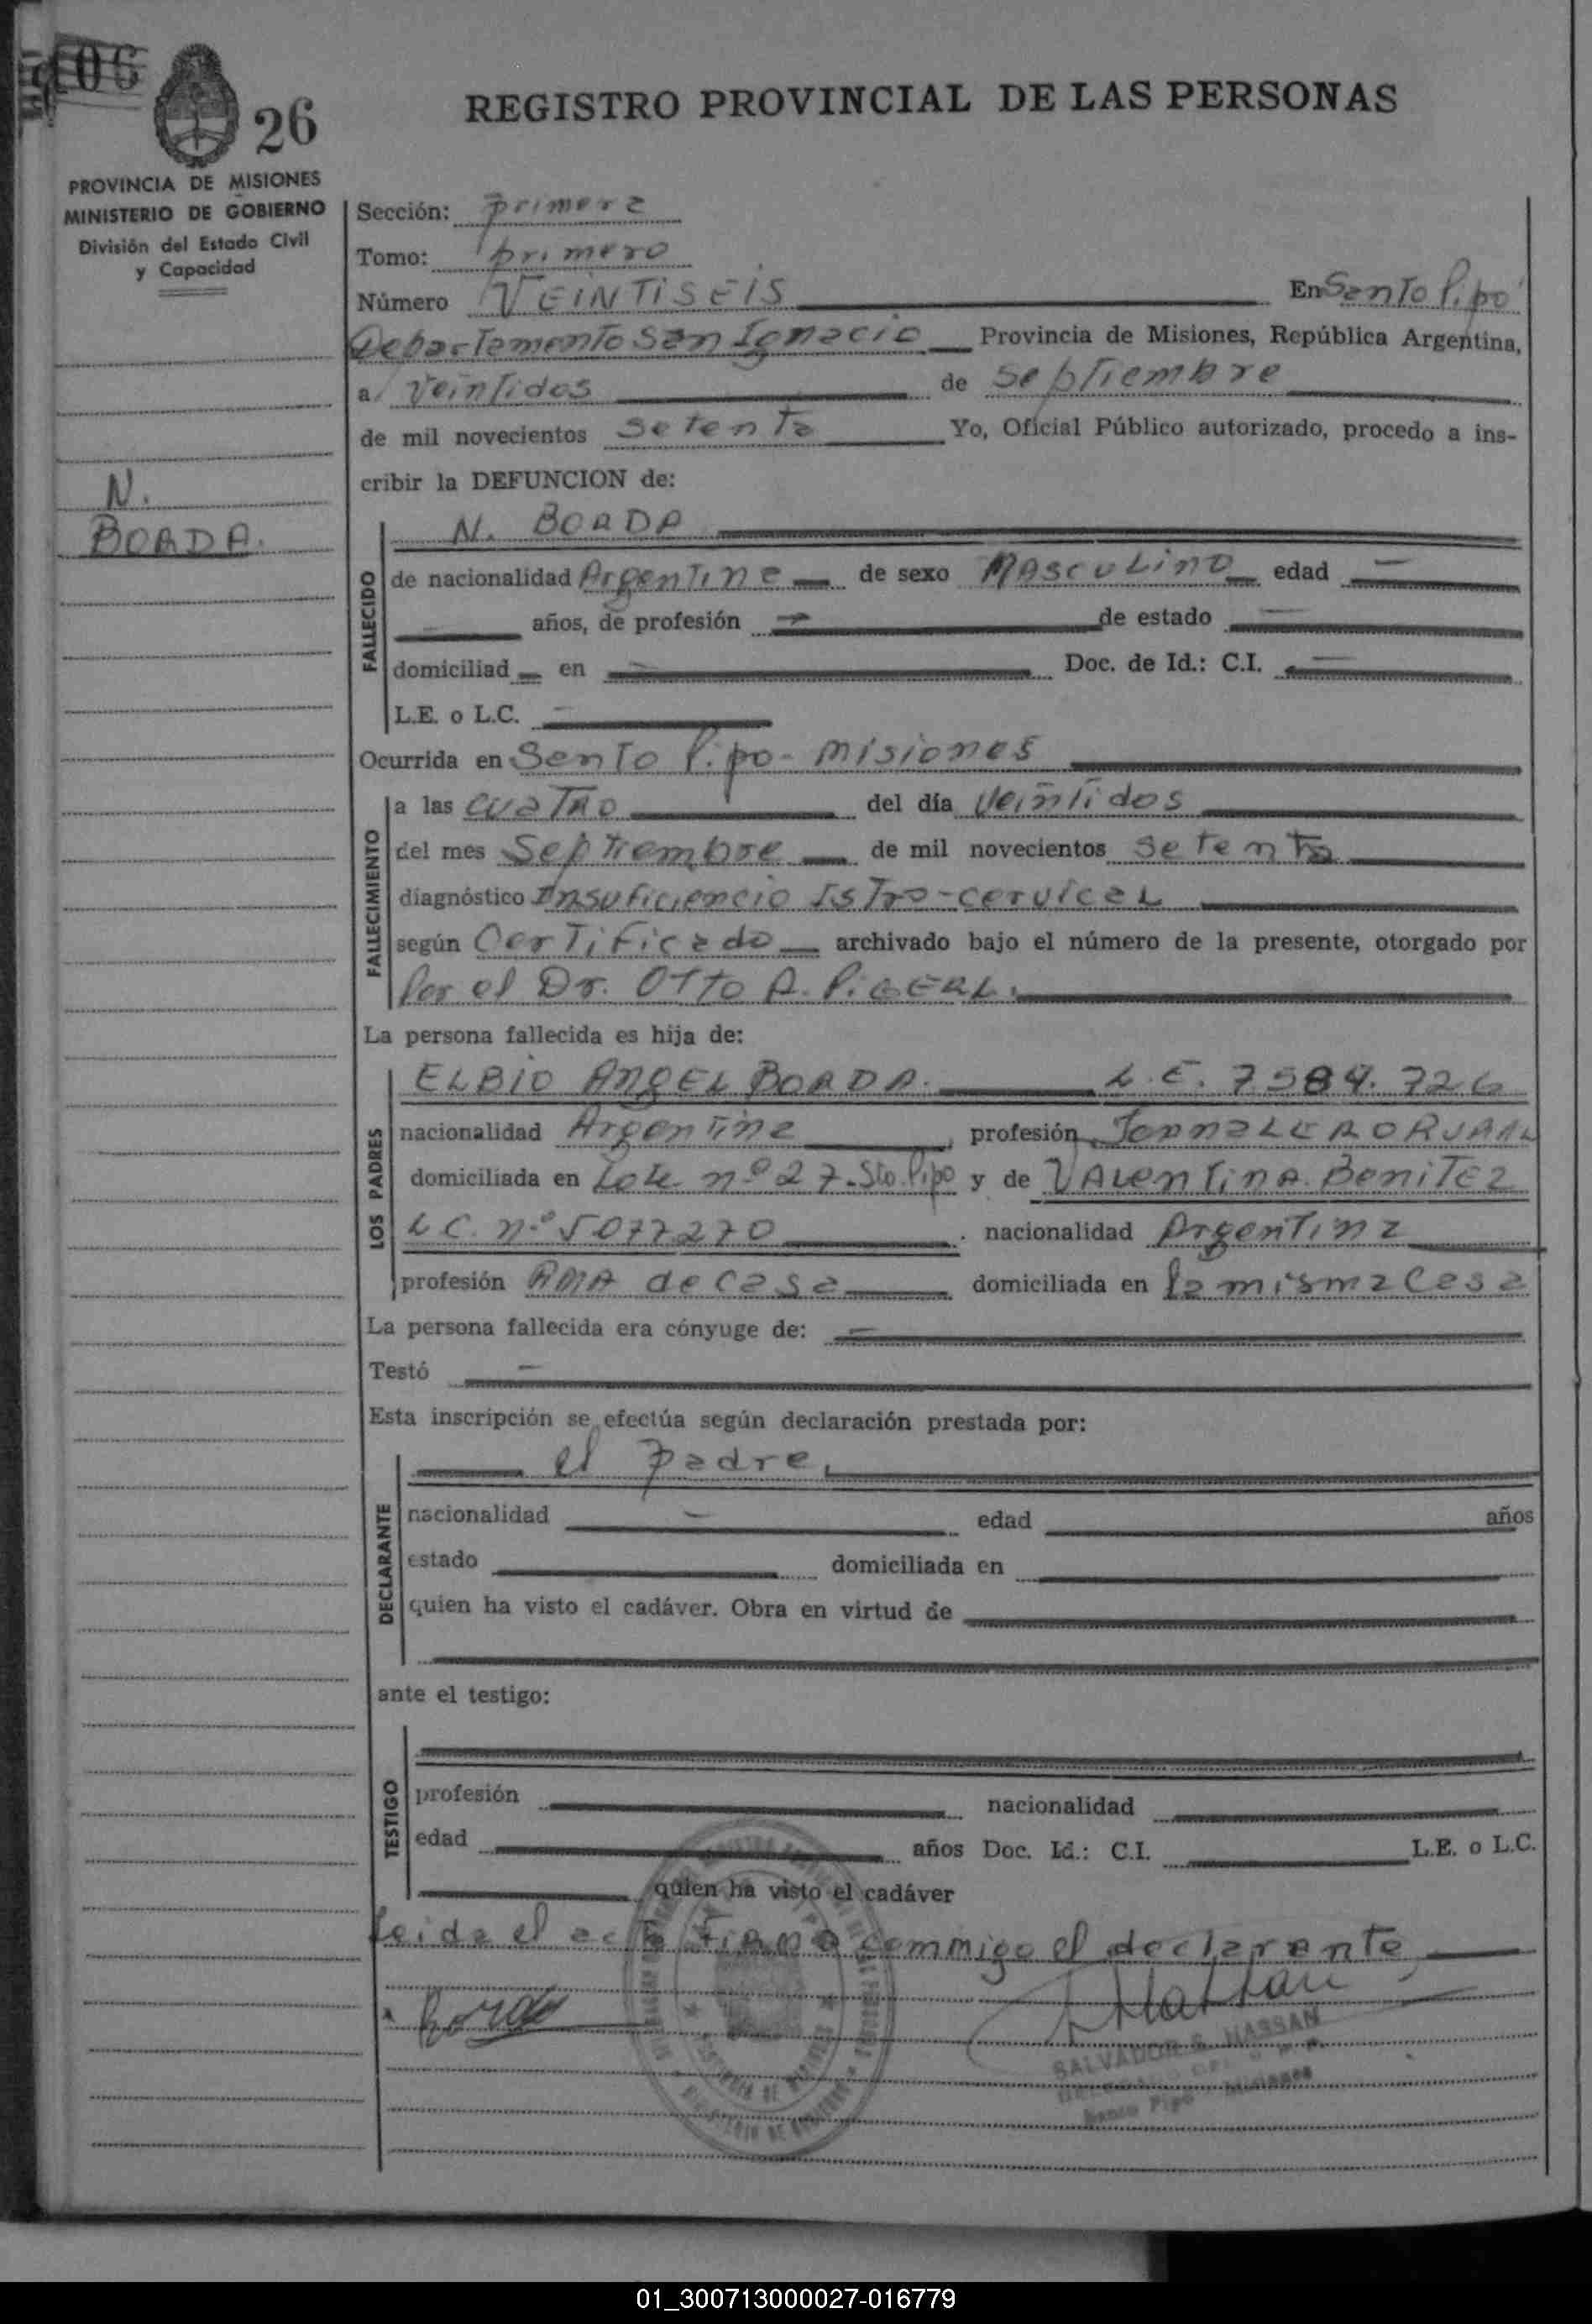 26
REGISTRO PROVINCIAL DE LAS PERSONAS
PROVINCIA DE MISIONES
MINISTERIO DE GOBIERNO
División del Estado Civil
y Capacidad
N.
BORDA.
Sección: primera
Tomo: primero
Número VEINTISEIS En Santo Pipó
Departamento San Ignacio Provincia de Misiones, República Argentina,
a Veintidos de Septiembre
de mil novecientos setenta Yo, Oficial Público autorizado, procedo a ins-
cribir la DEFUNCION de:
FALLECIDO
N. BORDA
de nacionalidad Argentina de sexo MASCULINO edad —
— años, de profesión — de estado —
domiciliad — en — Doc. de Id.: C.I. —
L.E. o L.C. —
Ocurrida en Santo Pipo - misiones
FALLECIMIENTO
a las cuaTRO del día Veintidos
del mes Septiembre de mil novecientos setenta
diagnóstico Insuficiencia Istro-cervical
según Certificado archivado bajo el número de la presente, otorgado por
Por el Dr. Otto A.
La persona fallecida es hija de:
LOS PADRES
ELBIO ANGEL BORDA. L.E. 7584.726
nacionalidad Argentina, profesión
domiciliada en Lote nº 27. Sto. Pipo y de VALENTINA BENITEZ
L C. n.º 5077270. nacionalidad Argentina
profesión AMA de casa domiciliada en la misma casa
La persona fallecida era cónyuge de: —
Testó —
Esta inscripción se efectúa según declaración prestada por:
DECLARANTE
el padre,
nacionalidad — edad años
estado domiciliada en
quien ha visto el cadáver. Obra en virtud de
ante el testigo:
TESTIGO
profesión nacionalidad
edad años Doc. Id.: C.I. L.E. o L.C.
quien ha visto el cadáver
Leida el acta FIRMA conmigo el declarante
Borda
SALVADOR S. HASSAN
Santo Pipó Misiones
01_300713000027-016779